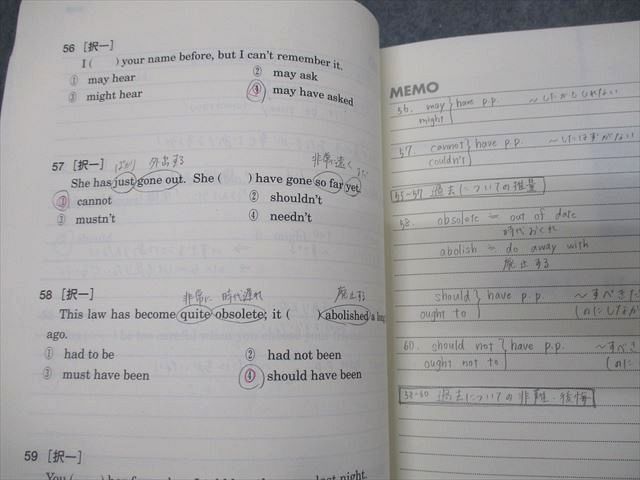 56 [択一]
I (    ) your name before, but I can't remember it.
① may hear ② may ask
③ might hear ④ may have asked
57 [択一]
ばかり 外出する 非常に遠く まだ
She has just gone out. She (    ) have gone so far yet.
① cannot ② shouldn't
③ mustn't ④ needn't
58 [択一]
非常に 時代遅れ 廃止する
This law has become quite obsolete; it (    ) abolished a long
ago.
① had to be ② had not been
③ must have been ④ should have been
59 [択一]
You (    ) last night.
MEMO
56. may have p.p. 〜したかもしれない
might
57. cannot have p.p. 〜したはずがない
couldn't
55~57 過去についての推量
58. obsolete = out of date
時代おくれ
abolish = do away with
廃止する
should have p.p. 〜すべきだ
ought to (のにしなか
60. should not have p.p. 〜すべき
ought not to (のに
58~60 過去についての非難・後悔